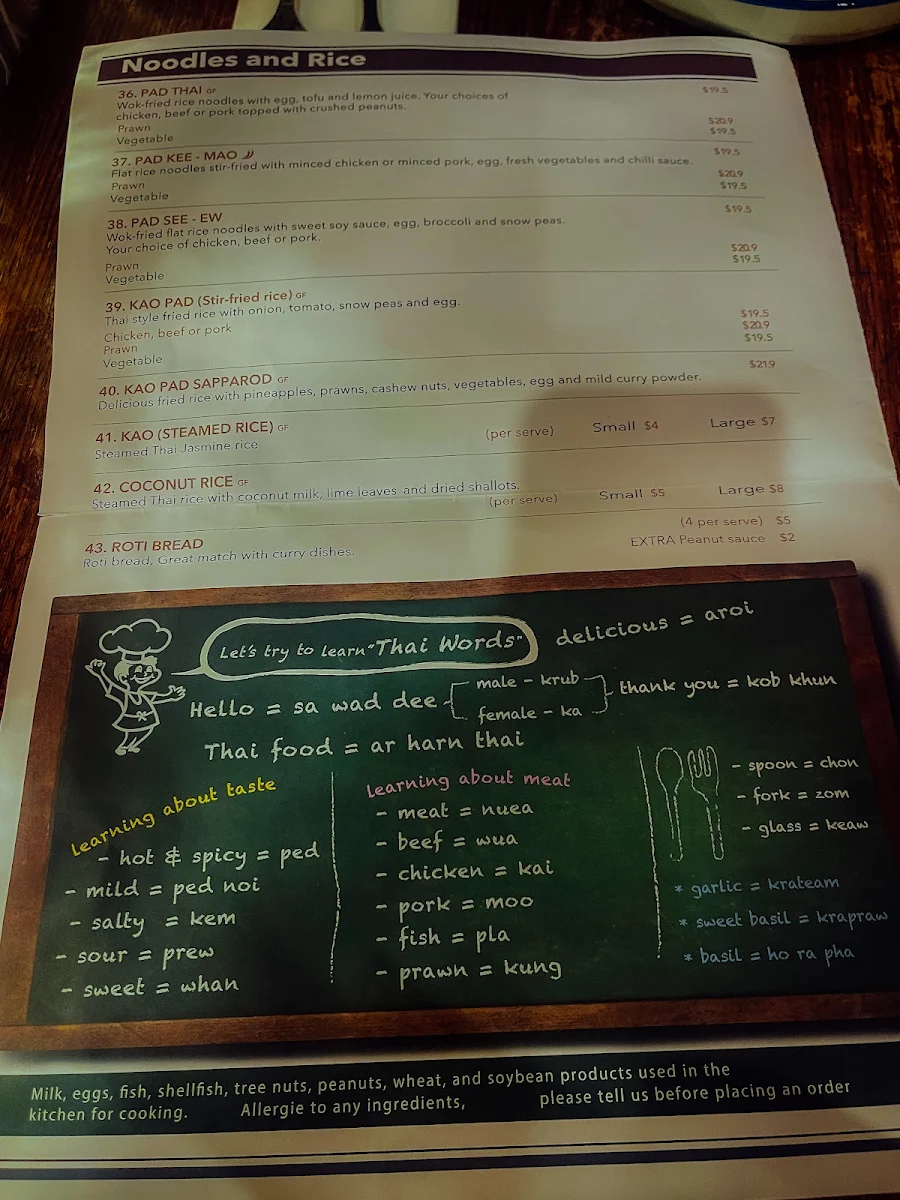 Noodles and Rice
36. PAD THAI GF $19.5
Wok-fried rice noodles with egg, tofu and lemon juice. Your choices of
chicken, beef or pork topped with crushed peanuts.
Prawn $20.9
Vegetable $19.5
37. PAD KEE - MAO $19.5
Flat rice noodles stir-fried with minced chicken or minced pork, egg, fresh vegetables and chilli sauce.
Prawn $20.9
Vegetable $19.5
38. PAD SEE - EW $19.5
Wok-fried flat rice noodles with sweet soy sauce, egg, broccoli and snow peas.
Your choice of chicken, beef or pork.
Prawn $20.9
Vegetable $19.5
39. KAO PAD (Stir-fried rice) GF
Thai style fried rice with onion, tomato, snow peas and egg.
Chicken, beef or pork $19.5
Prawn $20.9
Vegetable $19.5
40. KAO PAD SAPPAROD GF $21.9
Delicious fried rice with pineapples, prawns, cashew nuts, vegetables, egg and mild curry powder.
41. KAO (STEAMED RICE) GF (per serve) Small $4 Large $7
Steamed Thai Jasmine rice
42. COCONUT RICE GF
Steamed Thai rice with coconut milk, lime leaves and dried shallots.
(per serve) Small $5 Large $8
43. ROTI BREAD (4 per serve) $5
Roti bread, Great match with curry dishes. EXTRA Peanut sauce $2
Let's try to learn "Thai Words"
delicious = aroi
Hello = sa wad dee
male - krub
female - ka
thank you = kob khun
Thai food = ar harn thai
Learning about taste
- hot & spicy = ped
- mild = ped noi
- salty = kem
- sour = prew
- sweet = whan
Learning about meat
- meat = nuea
- beef = wua
- chicken = kai
- pork = moo
- fish = pla
- prawn = kung
- spoon = chon
- fork = zom
- glass = keaw
* garlic = krateam
* sweet basil = krapraw
* basil = ho ra pha
Milk, eggs, fish, shellfish, tree nuts, peanuts, wheat, and soybean products used in the
kitchen for cooking. Allergie to any ingredients, please tell us before placing an order